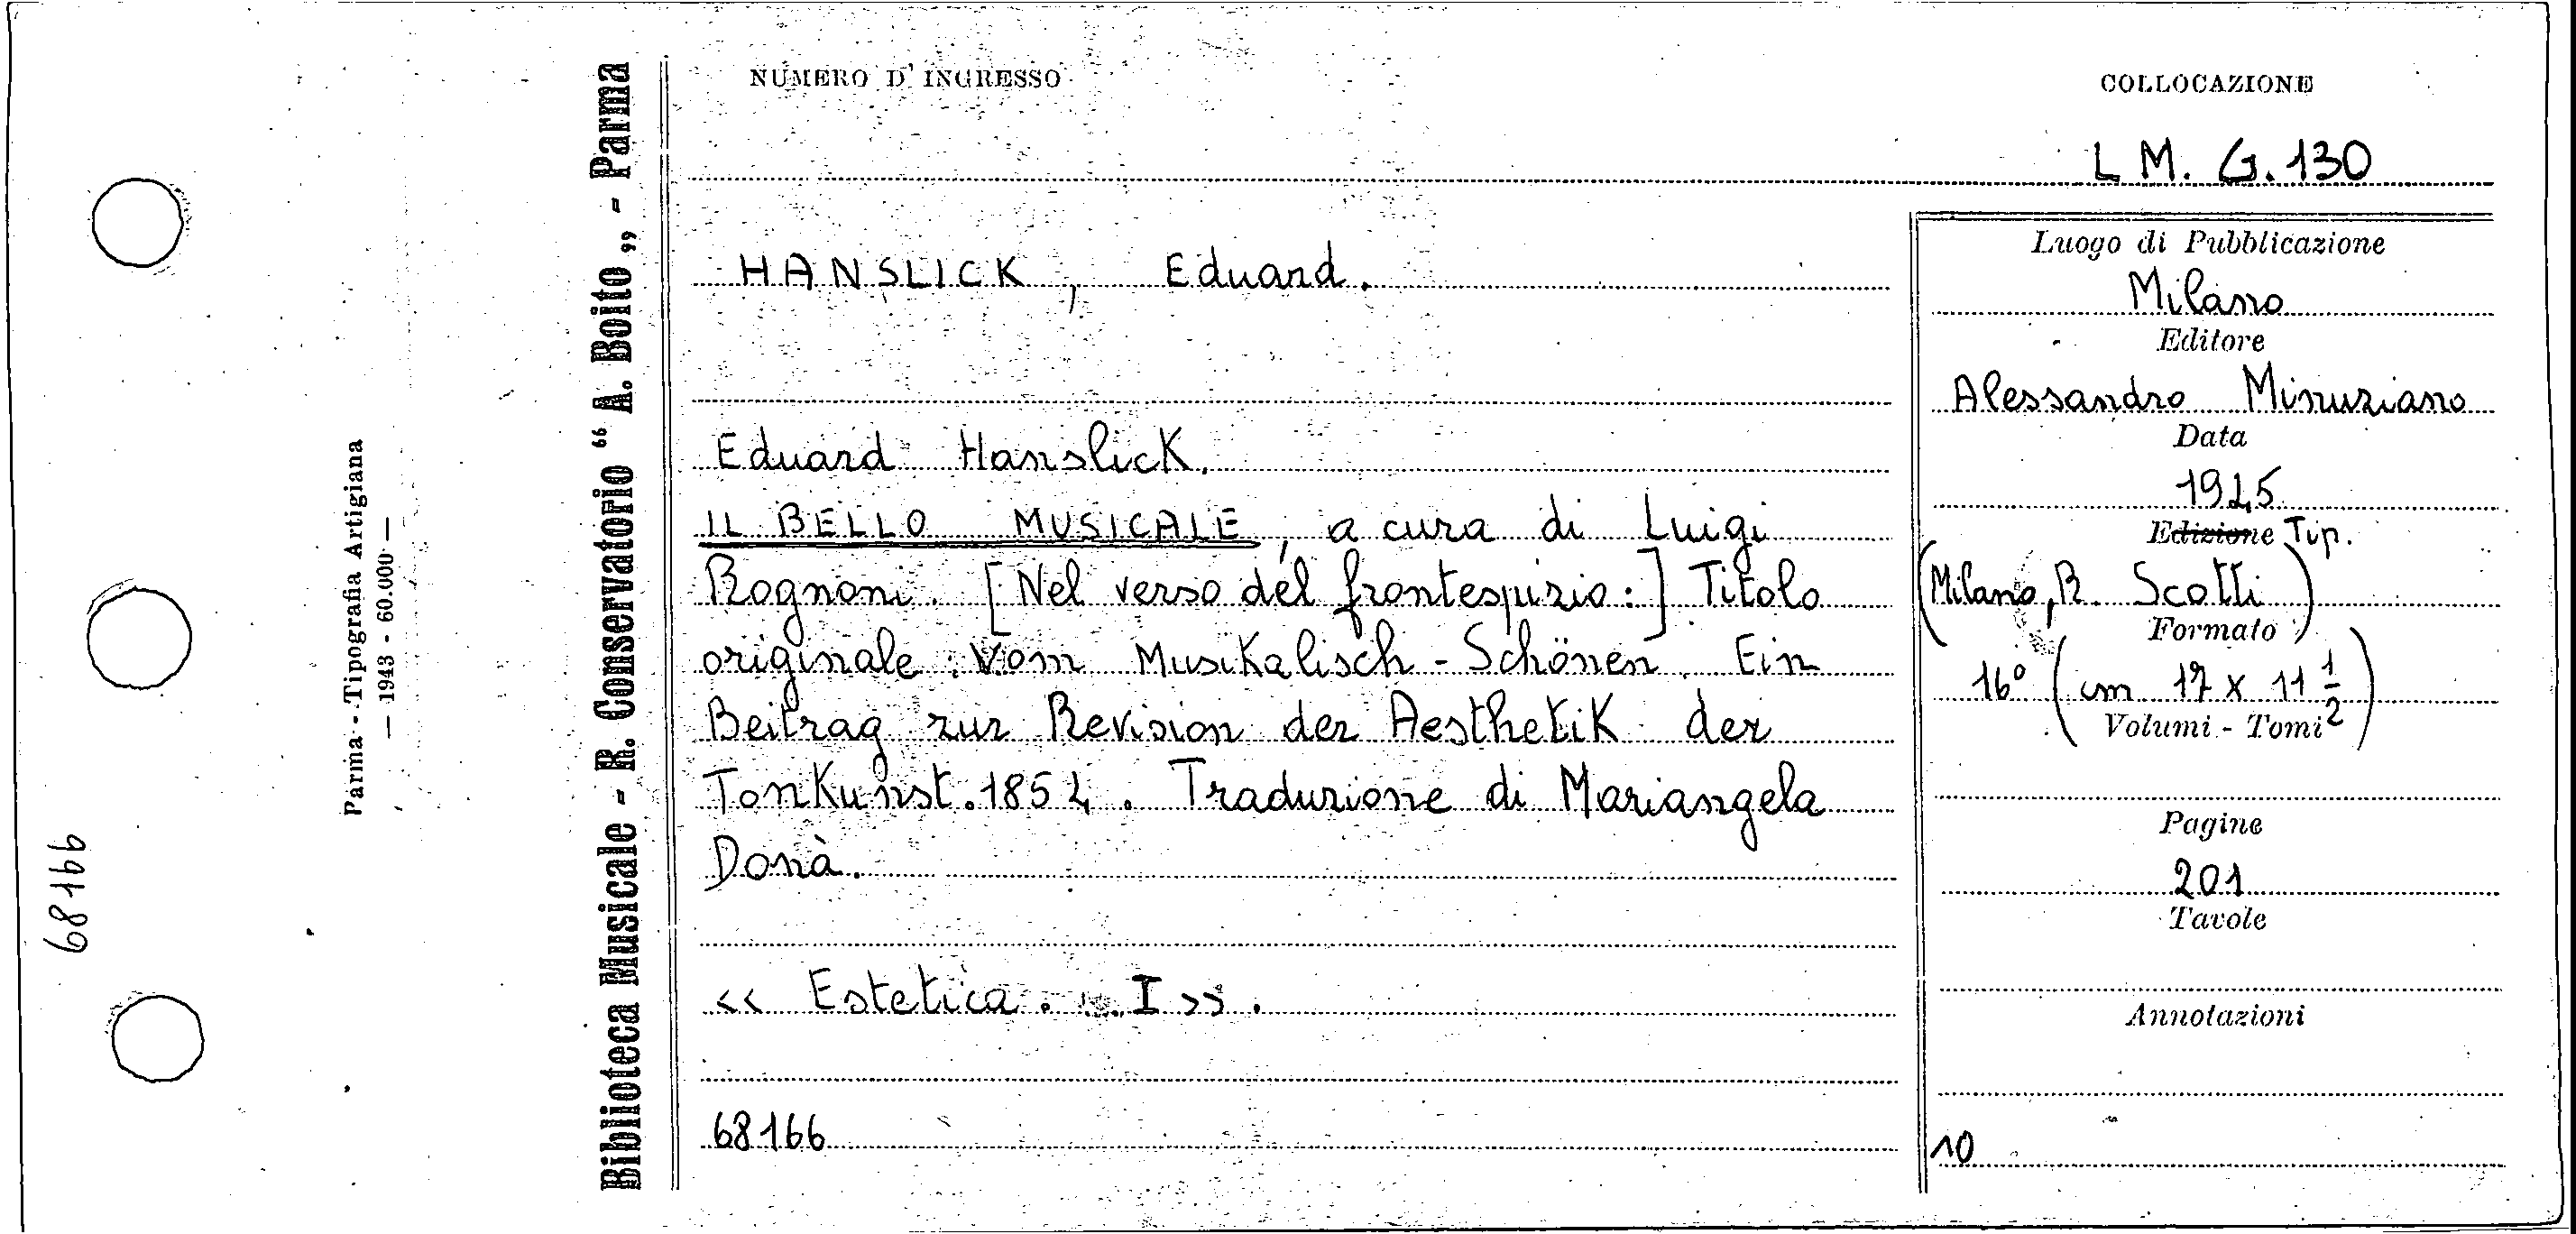 NUMERO D' INGRESSO
COLLOCAZIONE
L M. G. 130
HANSLICK, Eduard.
Eduard Hanslick.
IL BELLO MUSICALE, a cura di Luigi
Rognoni. [Nel verso del frontespizio:] Titolo
originale: Vom Musikalisch-Schönen. Ein
Beitrag zur Revision der Aesthetik der
Tonkunst. 1854. Traduzione di Mariangela
Donà.
<< Estetica. I >>.
68166
Luogo di Pubblicazione
Milano
Editore
Alessandro Minuziano
Data
1945
Edizione Tip.
(Milano, R. Scotti)
Formato
16° (cm 17 x 11 1/2)
Volumi - Tomi
Pagine
201
Tavole
Annotazioni
10
Biblioteca Musicale - R. Conservatorio “ A. Boito „ - Parma
Parma - Tipografia Artigiana
— 1943 - 60.000 —
68166